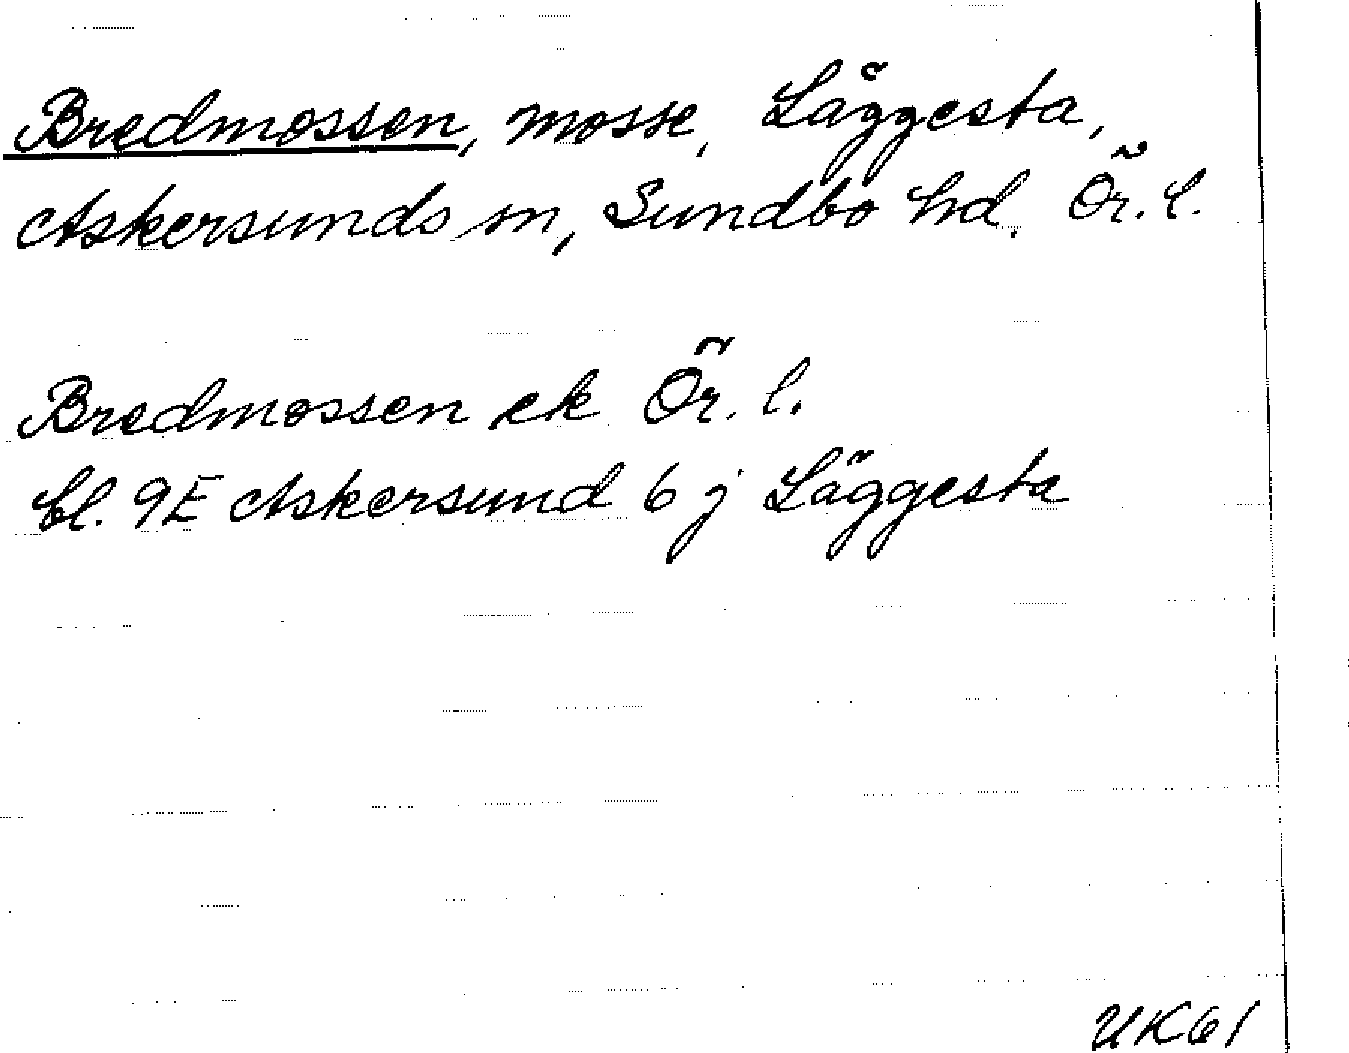 Bredmossen, mosse, Läggesta,
Askersunds sn, Sundbo hd. Ör. l.
Bredmossen ek Ör. l.
bl. 9E Askersund 6 j Läggesta
UK61